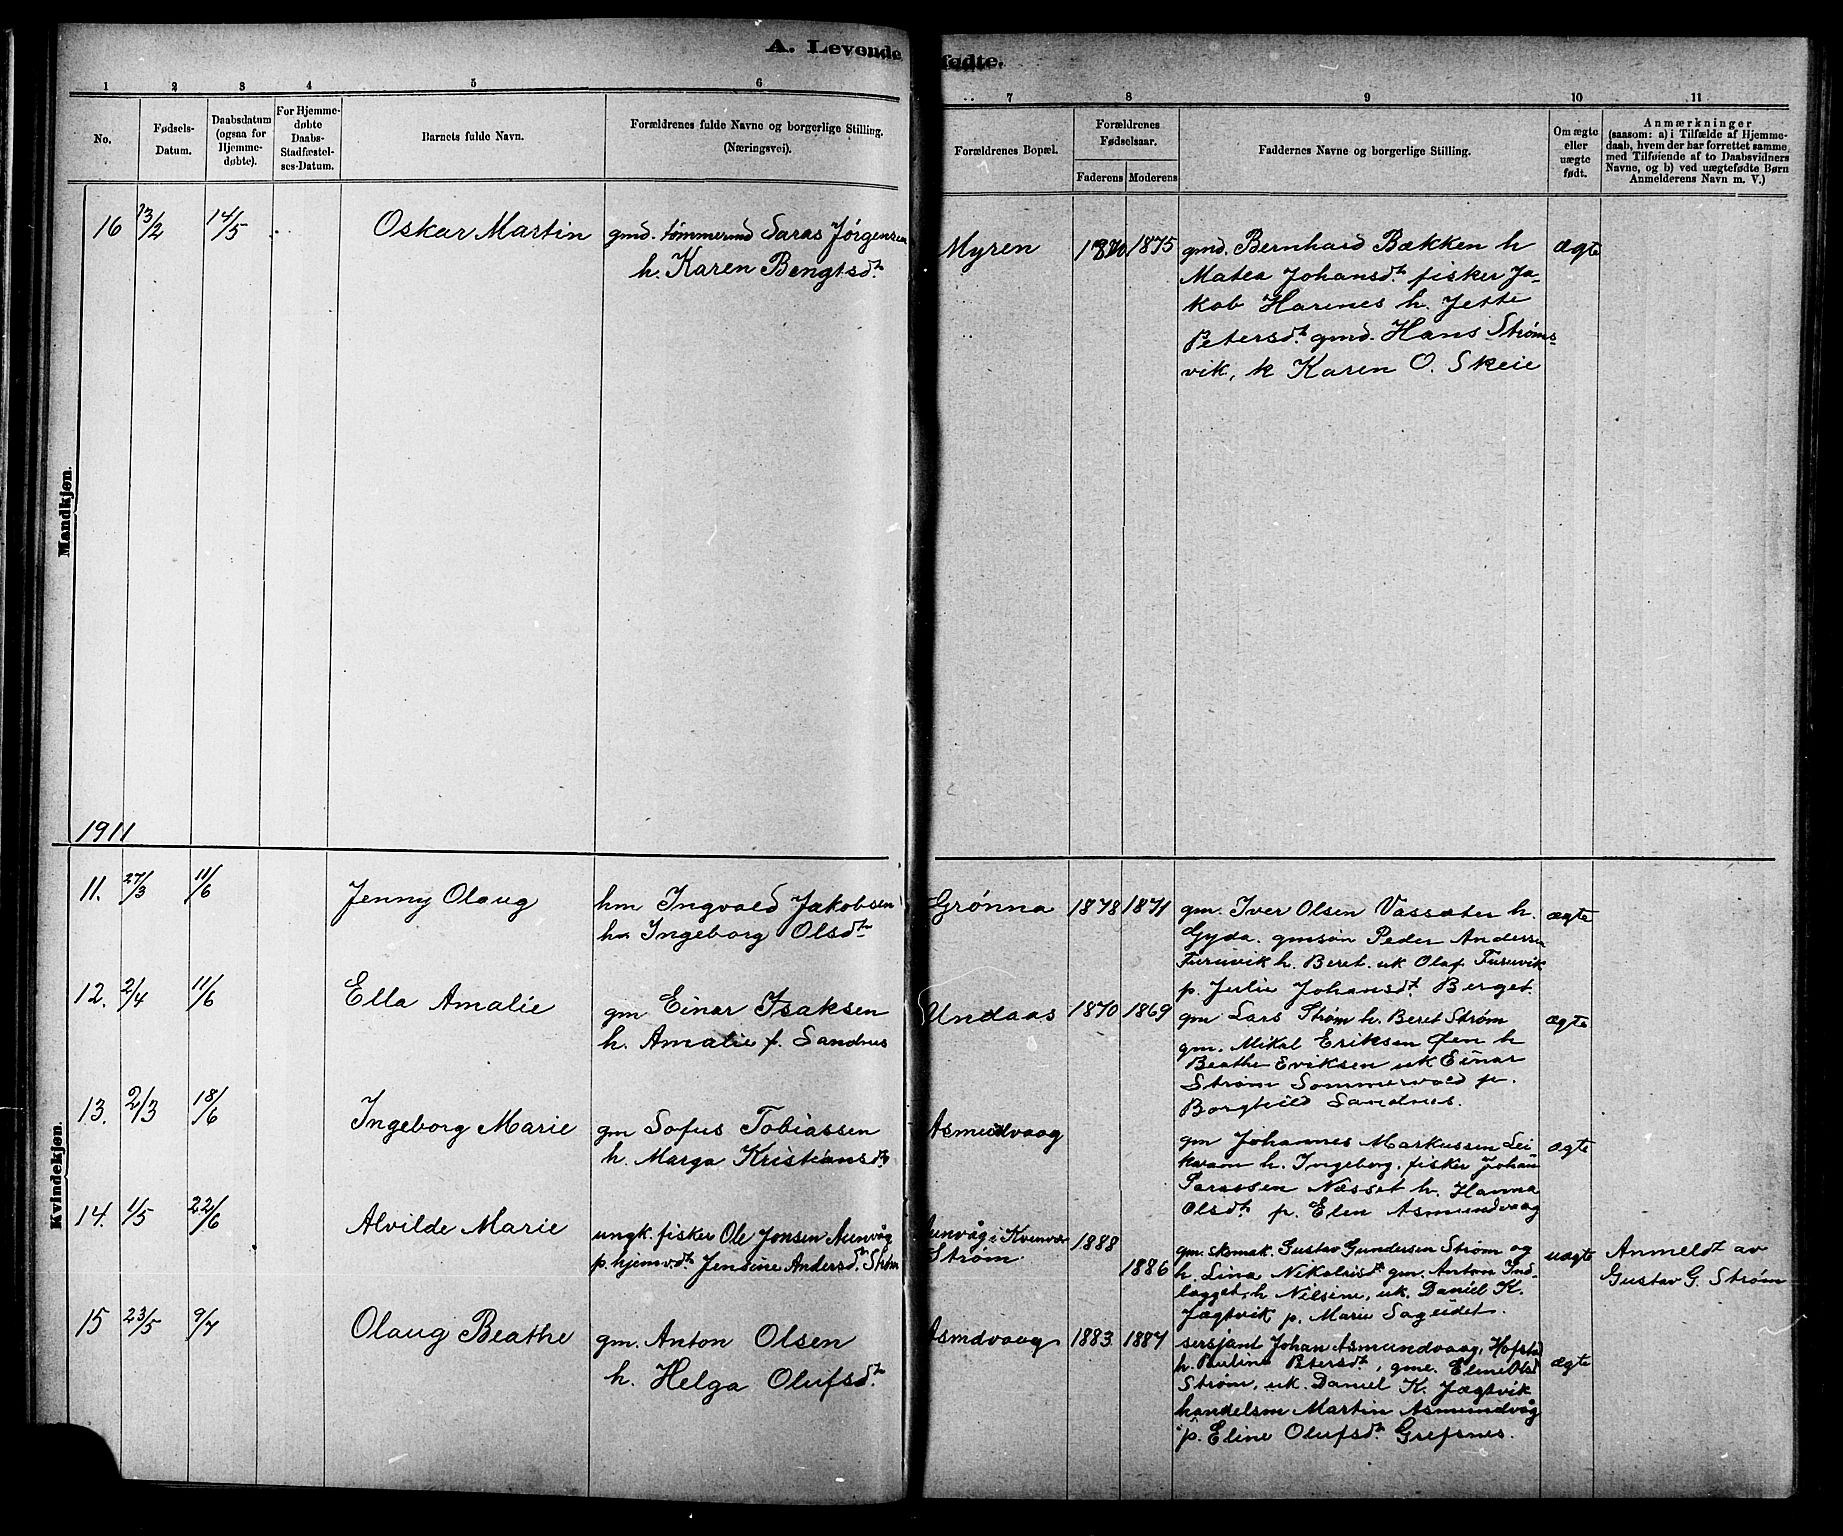 A. Levende
fødte.
1 2 3 4 5 6 7 8 9 10 11
No.
Fødsels-
Datum.
Daabsdatum
(ogsaa for
Hjemme-
døbte).
For Hjemme-
døbte
Daabs-
Stadfæstel-
ses-Datum.
Barnets fulde Navn.
Forældrenes fulde Navne og borgerlige Stilling.
(Næringsvei).
Forældrenes Bopæl.
Forældrenes
Fødselsaar.
Faderens Moderens
Faddernes Navne og borgerlige Stilling.
Om ægte
eller
uægte
født.
Anmærkninger
(saasom: a) i Tilfælde af Hjemme-
daab, hvem der har forrettet samme,
med Tilføiende af to Daabsvidners
Navne, og b) ved uægtefødte Børn
Anmelderens Navn m. V.)
Mandkjøn.
16 13/2 14/5 Oskar Martin
gmd. tømmermd Saras Jørgensen
h. Karen Bengtsdtr
Myren 1870 1875
gmd. Bernhard Bækken h
Matea Johansdtr fisker Ja-
kob Harenes h. Jette
Petersdtr gmd. Hans Strøms-
vik, k Karen O. Skeie
ægte
1911
Kvindekjøn.
11. 27/3 11/6 Jenny Olaug
hm Ingvald Jakobsen
h. Ingeborg Olsdtr
Grønna 1878 1871
gm. Iver Olsen Vassæter h.
Gyda. gmsøn Peder Andersen
Furuvik h. Beret. uk Olaf Furuvik
p. Julie Johansdtr Berget.
ægte
12. 2/4 11/6 Ella Amalie
gm Einar Isaksen
h. Amalie f. Sandnes
Undaas 1870 1869
gm Lars Strøm h. Beret Strøm
gm. Mikal Eriksen Øen h
Beathe Eriksen uk Einar
Strøm Sommervold p.
Borghild Sandnes.
ægte
13. 2/3 18/6 Ingeborg Marie
gm Sofus Tobiassen
h. Marga Kristiansdtr
Asmundvaag
gm Johannes Markussen Lei-
kvam h. Ingeborg, fisker Johan
Larssen Næsset h. Hanna
Olsdtr p. Elen Asmundvaag
ægte
14. 1/5 22/6 Alvilde Marie
ungk. fisker Ole Jonsen Aunvåg
p. hjemv.dtr Jensine Andersdtr Strøm
Aunvåg i Kvenvær
Strøm
1888 1886
gm. skomak. Gustav Gundersen Strøm og
h. Lina Nikolaisdtr gm. Anton Ind-
lægget, h Nilsine, uk. Daniel K.
Jægtvik p. Marie Sageidet.
uægte
Anmeldt av
Gustav G. Strøm
15 23/5 9/7 Olaug Beathe
gm. Anton Olsen
h. Helga Olufsdtr
Asmdvaag 1883 1887
sersjant Johan Asmundvaag, Hofstad
h. Pauline Petersdtr, gme. Eline Olsd
Strøm, uk. Daniel K. Jægtvik
handelsm Martin Asmundvåg
p. Eline Olufsdtr Grefsnes.
ægte